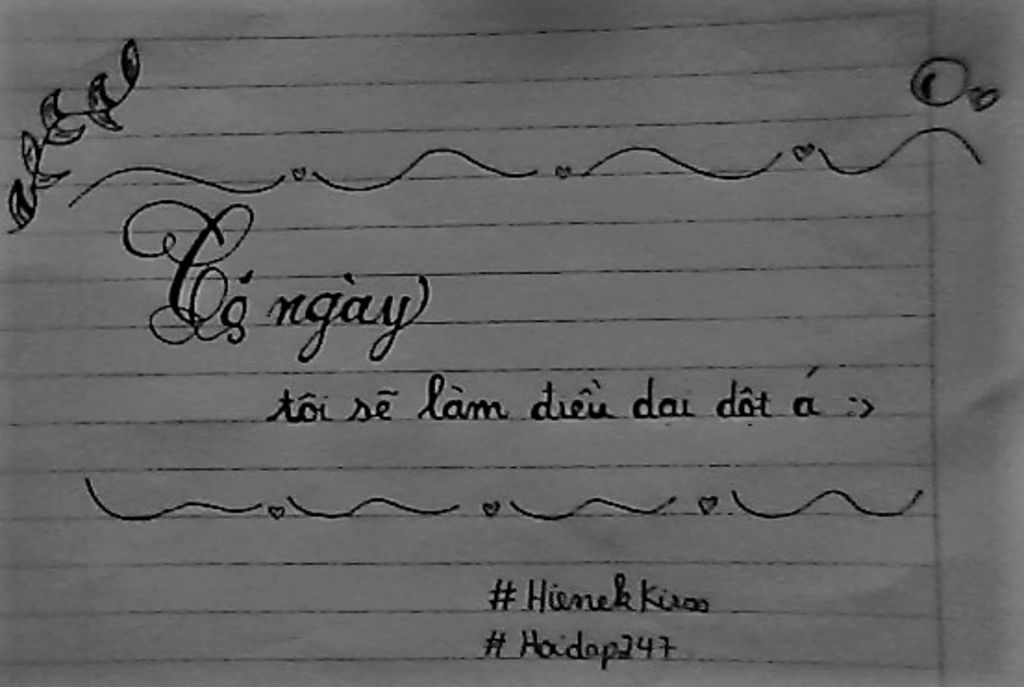 Có ngày
tôi sẽ làm điều dại dột á :>
#HienekKiroo
#Hoidap247